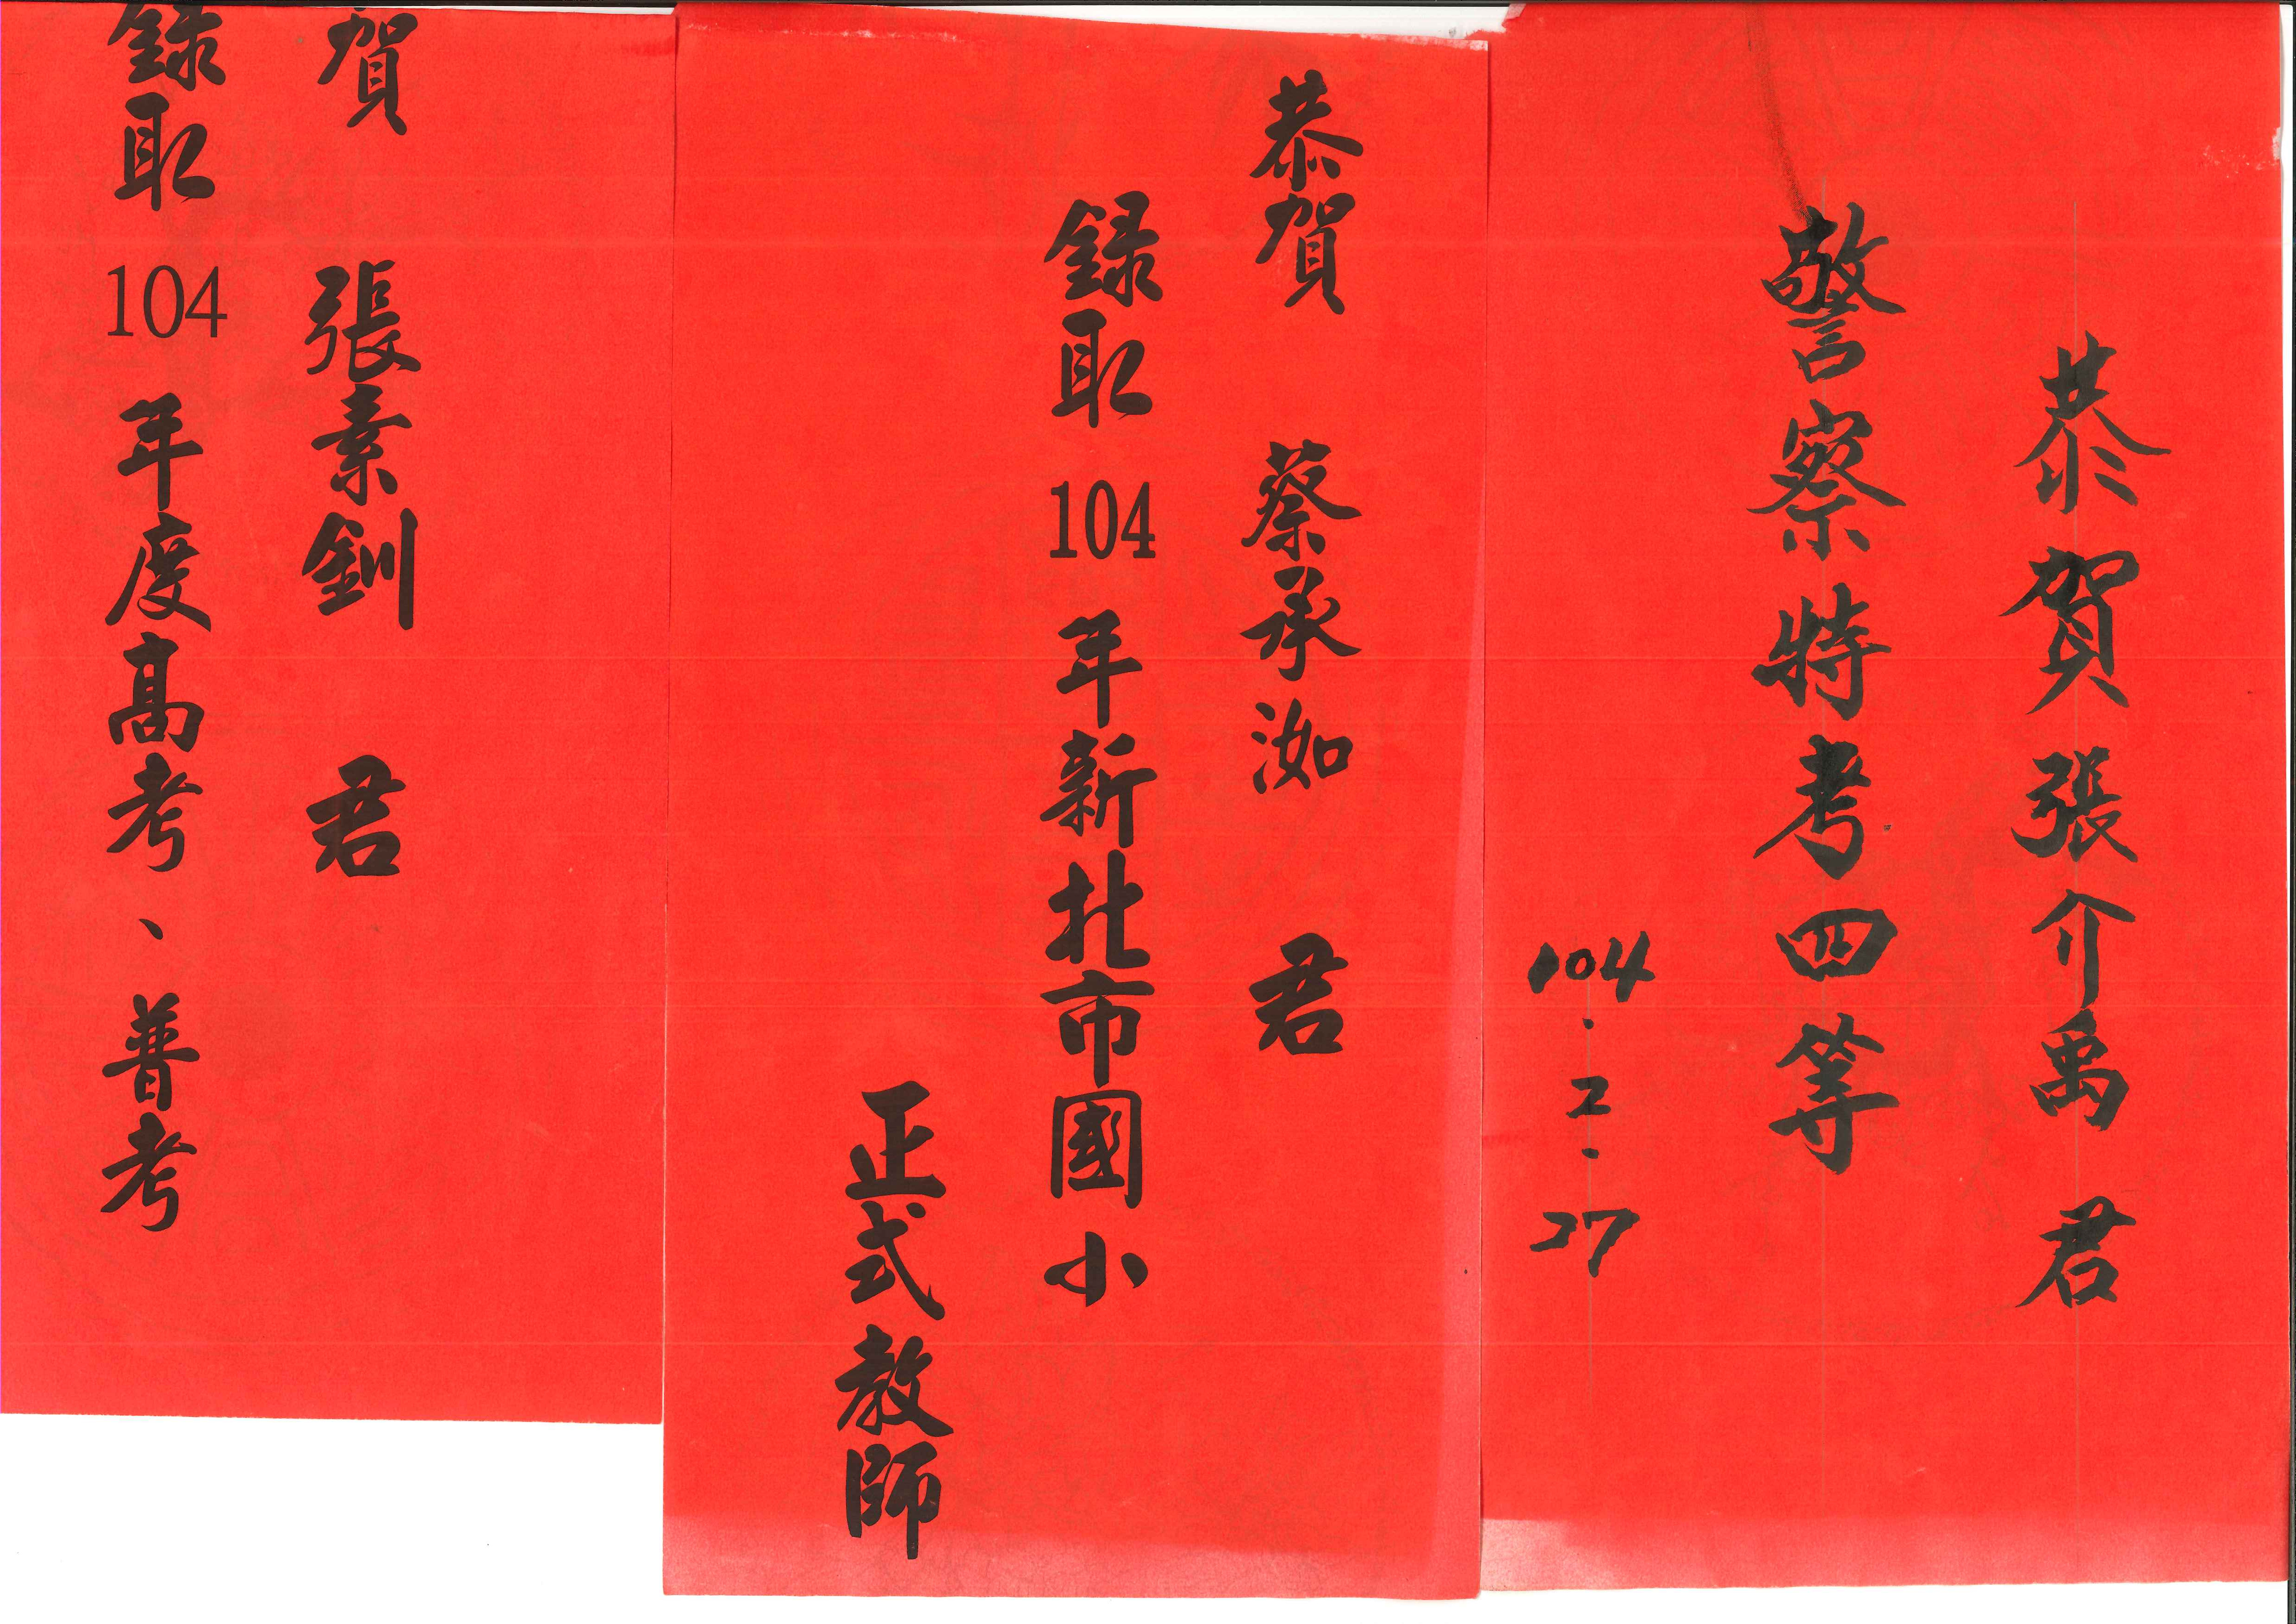 恭賀張介禹 君
警察特考四等
104.2.27
恭賀 蔡承洳 君
錄取 104 年新北市國小
正式教師
賀 張素釧 君
錄取 104 年度高考、普考